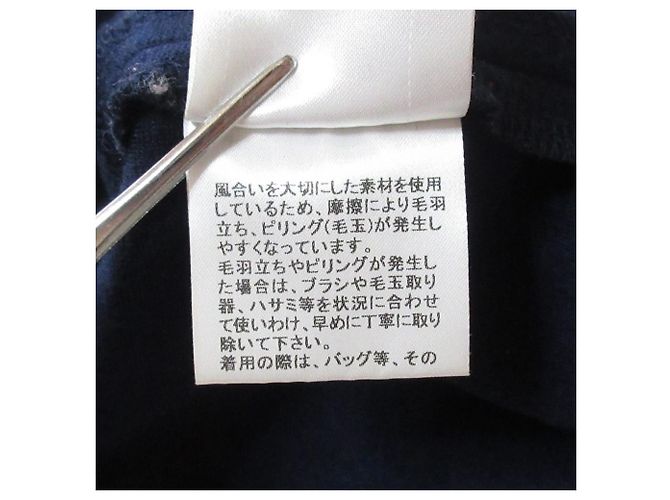 風合いを大切にした素材を使用
しているため、摩擦により毛羽
立ち、ピリング(毛玉)が発生し
やすくなっています。
毛羽立ちやピリングが発生し
た場合は、ブラシや毛玉取り
器、ハサミ等を状況に合わせ
て使いわけ、早めに丁寧に取り
除いて下さい。
着用の際は、バッグ等、その